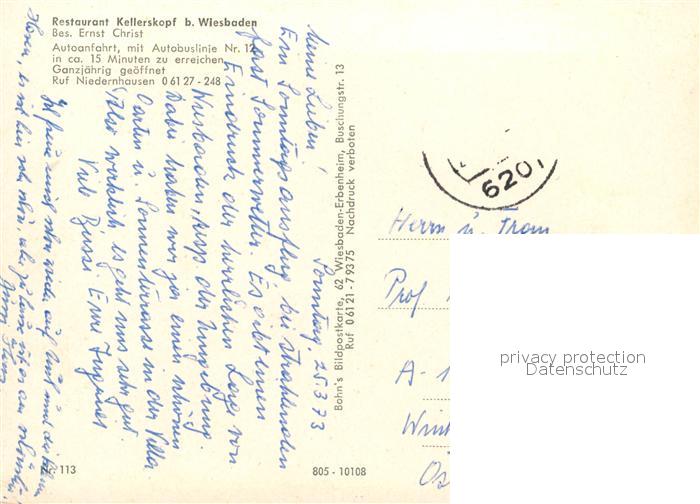 Restaurant Kellerskopf b. Wiesbaden
Bes. Ernst Christ
Autoanfahrt, mit Autobuslinie Nr. 12
in ca. 15 Minuten zu erreichen
Ganzjährig geöffnet
Ruf Niedernhausen 0 61 27 - 248
Sonntag, 25.3.73
Meine Lieben!
Ein Sonntagsausflug bei strahlendem
fast Sommerwetter. Es gibt einen
Eindruck der herrlichen Lage von
Wiesbaden, resp. der Umgebung.
Dabei haben wir ja einen schönen
Garten u. Sonnenterrasse in der Villa
also wirklich, es geht uns sehr gut
Viele Bussi Eure Ingrid
Ich freue mich aber wieder auf
Bohn's Bildpostkarte, 62 Wiesbaden-Erbenheim, Buschungstr. 13
Ruf 0 61 21 - 7 93 75 Nachdruck verboten
620
Herrn u. Frau
Prof.
A-1
Öst
privacy protection
Datenschutz
Nr. 113
805 - 10108